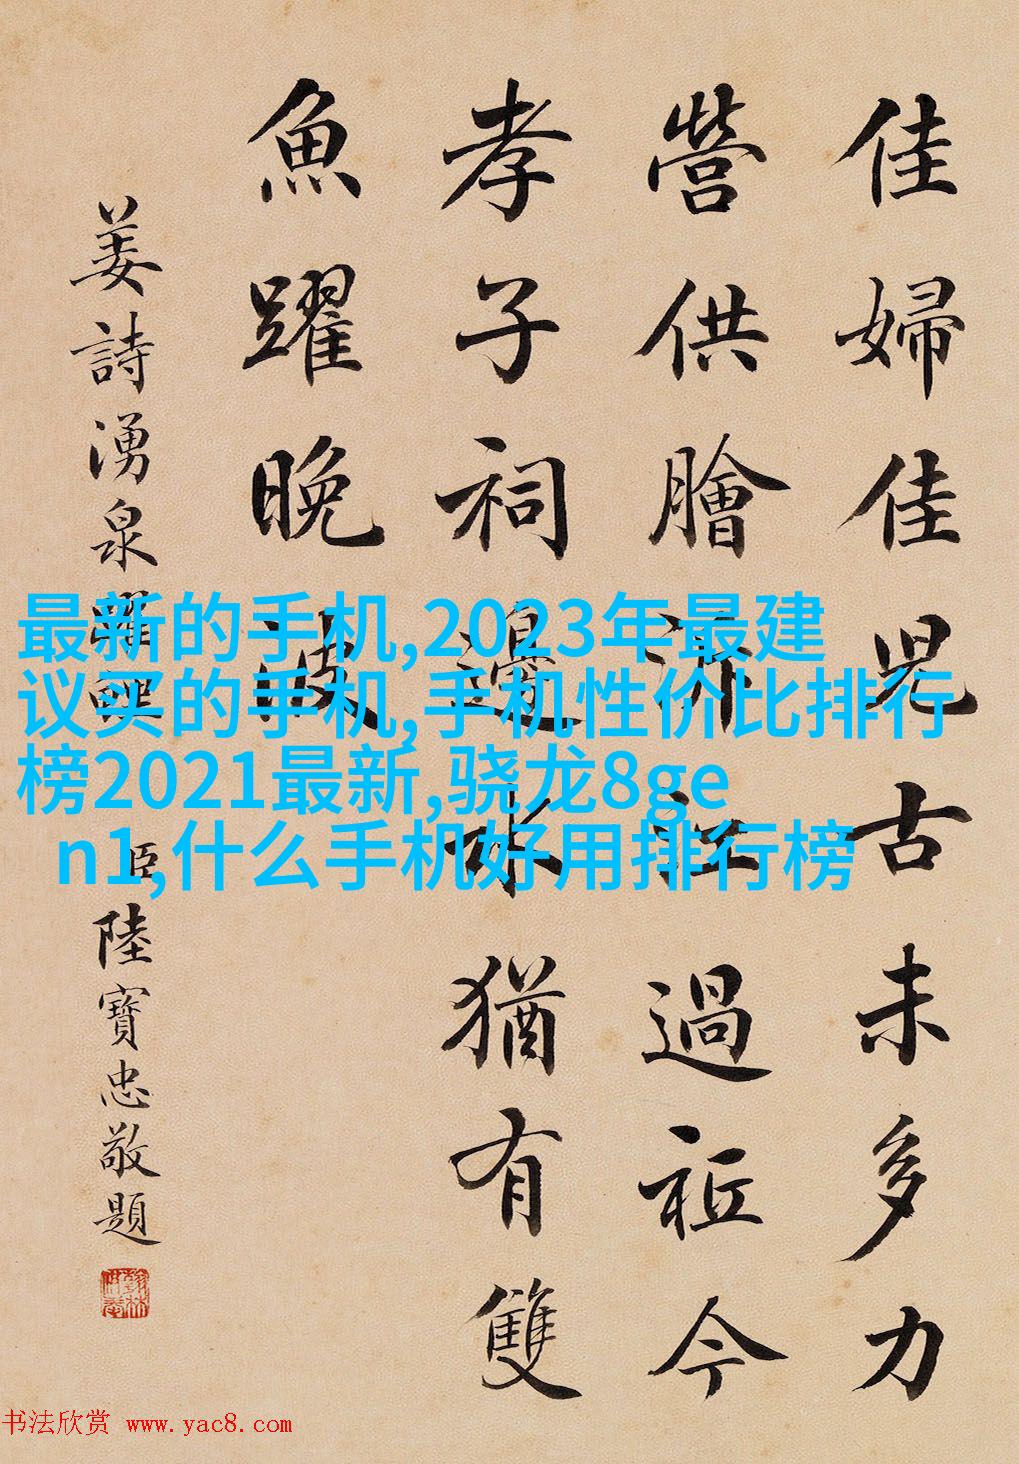 佳婦佳兒古未多力
營供膾泝江過祗今
孝子祠邊水猶有雙
魚躍晚波
姜詩湧泉躍鯉
臣陸寶忠敬題
最新的手机,2023年最建
议买的手机,手机性价比排行
榜2021最新,骁龙8ge
n1,什么手机好用排行榜
书法欣赏 www.yac8.com